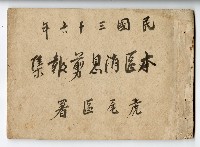 民國三十六年
本區消息剪報集
虎尾區署